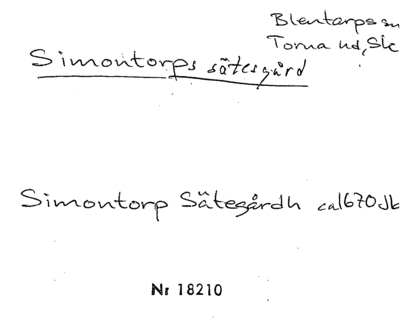 Blentarps sn
Torna hd, Sk
Simontorps sätesgård
Simontorp Sätegårdh ca1670 Jb
Nr 18210